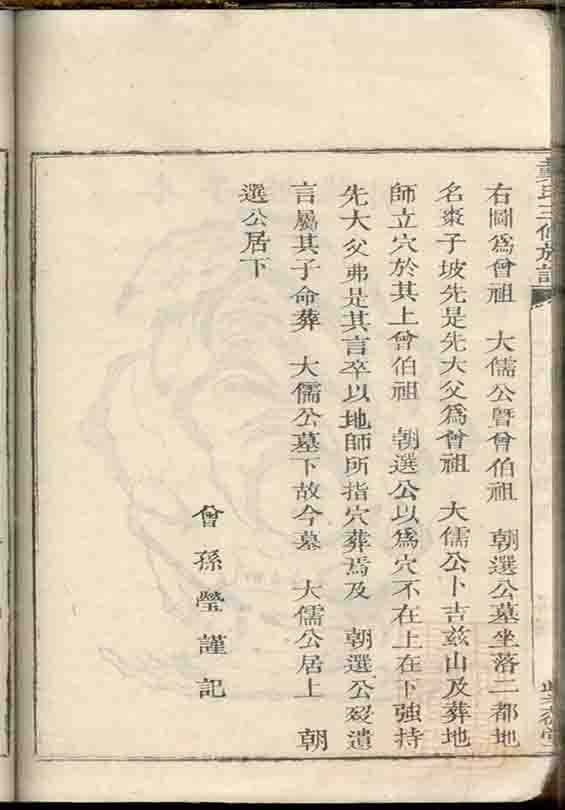 氏三修族譜
右圖爲曾祖　大儒公曁曾伯祖　朝選公墓坐落二都地
名棗子坡先是先大父爲曾祖　大儒公卜吉玆山及葬地
師立穴於其上曾伯祖　朝選公以爲穴不在上在下強持
先大父弗是其言卒以地師所指穴葬焉及　朝選公殁遺
言屬其子命葬　大儒公墓下故今墓　大儒公居上　朝
選公居下
曾孫瑩謹記